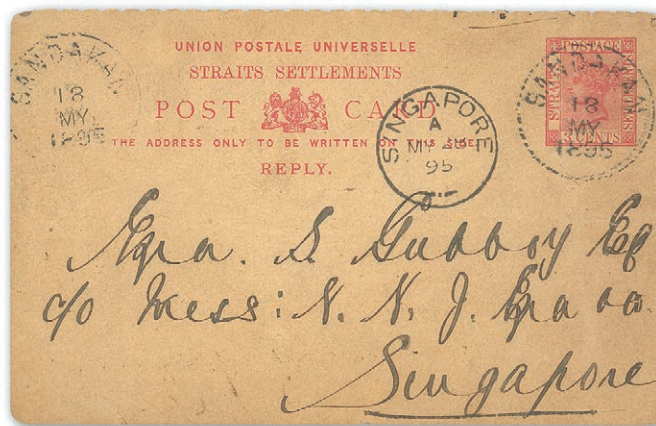 UNION POSTALE UNIVERSELLE
STRAITS SETTLEMENTS
POST CARD
THE ADDRESS ONLY TO BE WRITTEN ON THIS SIDE
REPLY.
SANDAKAN
18
MY
1895
SINGAPORE
A
MY
95
POSTAGE
STRAITS
SETTLEMENTS
3 CENTS
SANDAKAN
18
MY
1895
S Gubboy Eq
c/o Mess: N. N. J.
Singapore